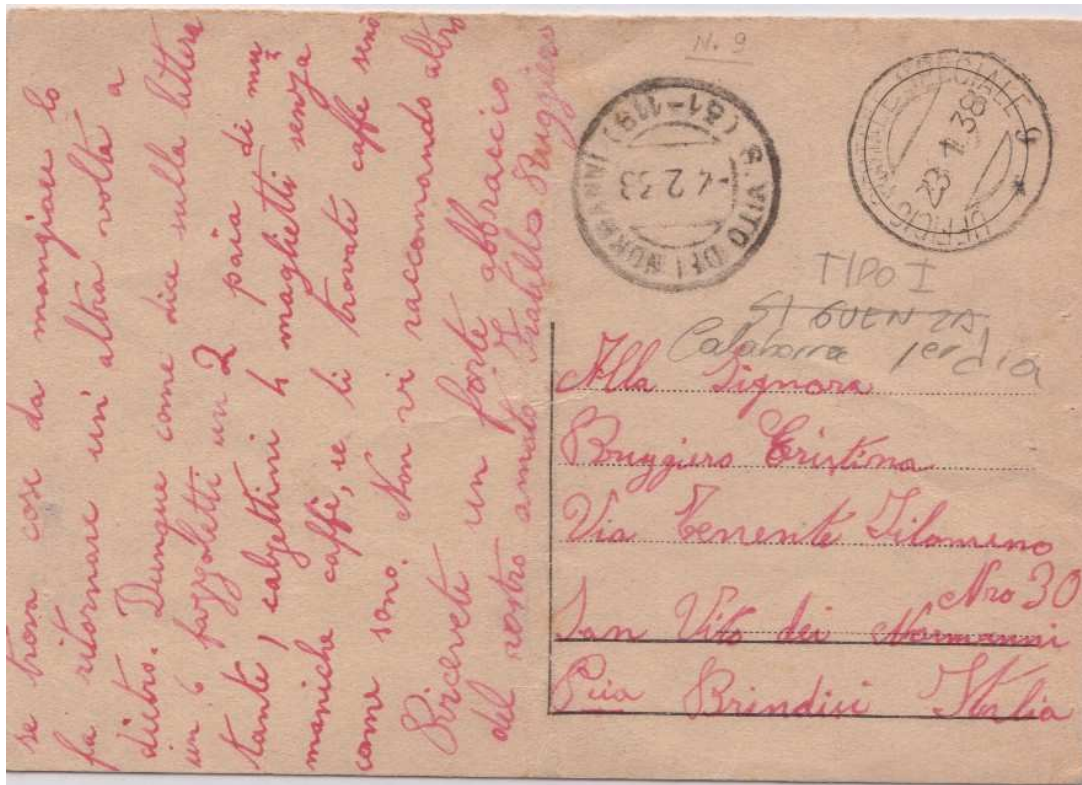 se trova cose da mangiare lo
fa ritornare un'altra volta a
dietro. Dunque come dice sulla lettera
un 6 fazzoletti un 2 paia di mu
tante, calzettini 4 maglietti senza
maniche caffè, se li trovate caffe senò
come sono. Non vi raccomando altro
Ricevete un forte abbraccio
del vostro amato Fratello Ruggiero
N. 9
S. VITO DEI NORMANNI (81-119)
-4.2.38
UFFICIO POSTALE SPECIALE 9
23.1.38
TIPO I
SIGUENZA
Calahorra
Alla Signora
Ruggiero Cristina
Via Tenente Filomeno
Nro 30
San Vito dei Normanni
Brindisi Italia